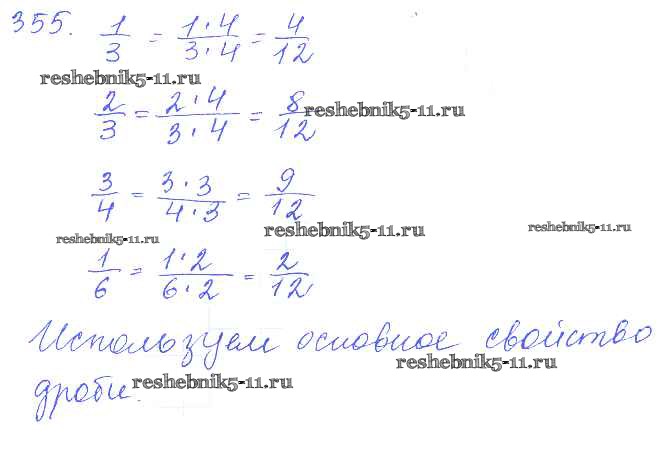 355. 1/3 = 1·4/3·4 = 4/12
reshebnik5-11.ru
2/3 = 2·4/3·4 = 8/12
reshebnik5-11.ru
3/4 = 3·3/4·3 = 9/12
reshebnik5-11.ru
reshebnik5-11.ru
reshebnik5-11.ru
1/6 = 1·2/6·2 = 2/12
Используем основное свойство
reshebnik5-11.ru
дроби.
reshebnik5-11.ru